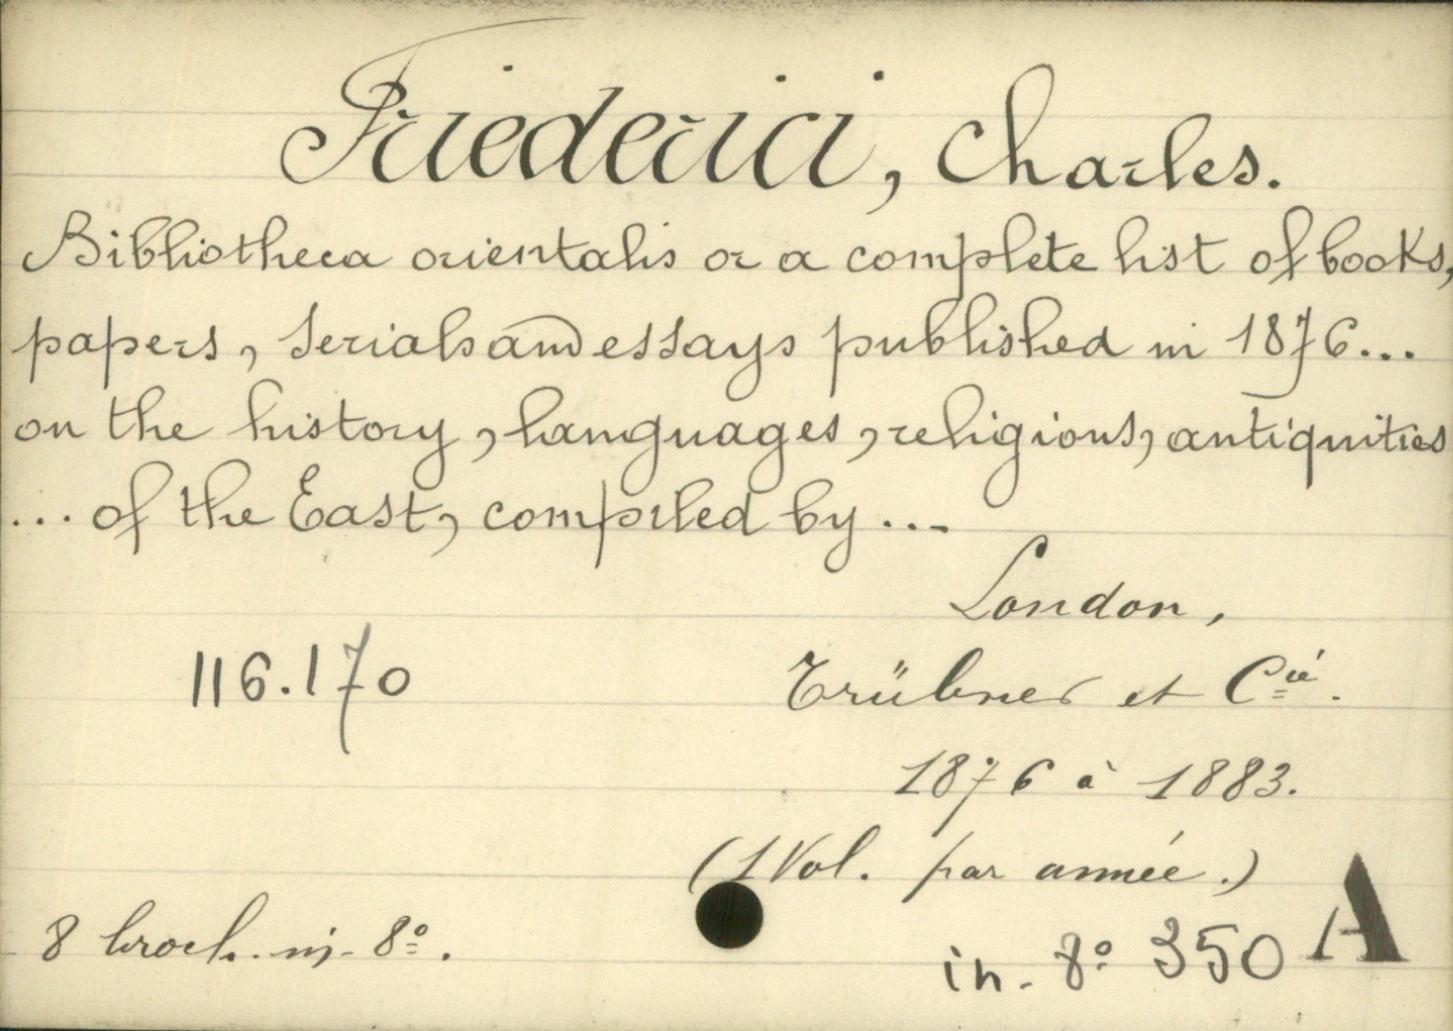 Friederici, Charles.
Bibliotheca orientalis or a complete list of books,
papers, serials and essays published in 1876...
on the history, languages, religions, antiquities
... of the East, compiled by ...
London,
116.170
Trübner et Cie.
1876 à 1883.
(1 Vol. par année.)
8 broch. in-8º.
in-8º 350 A